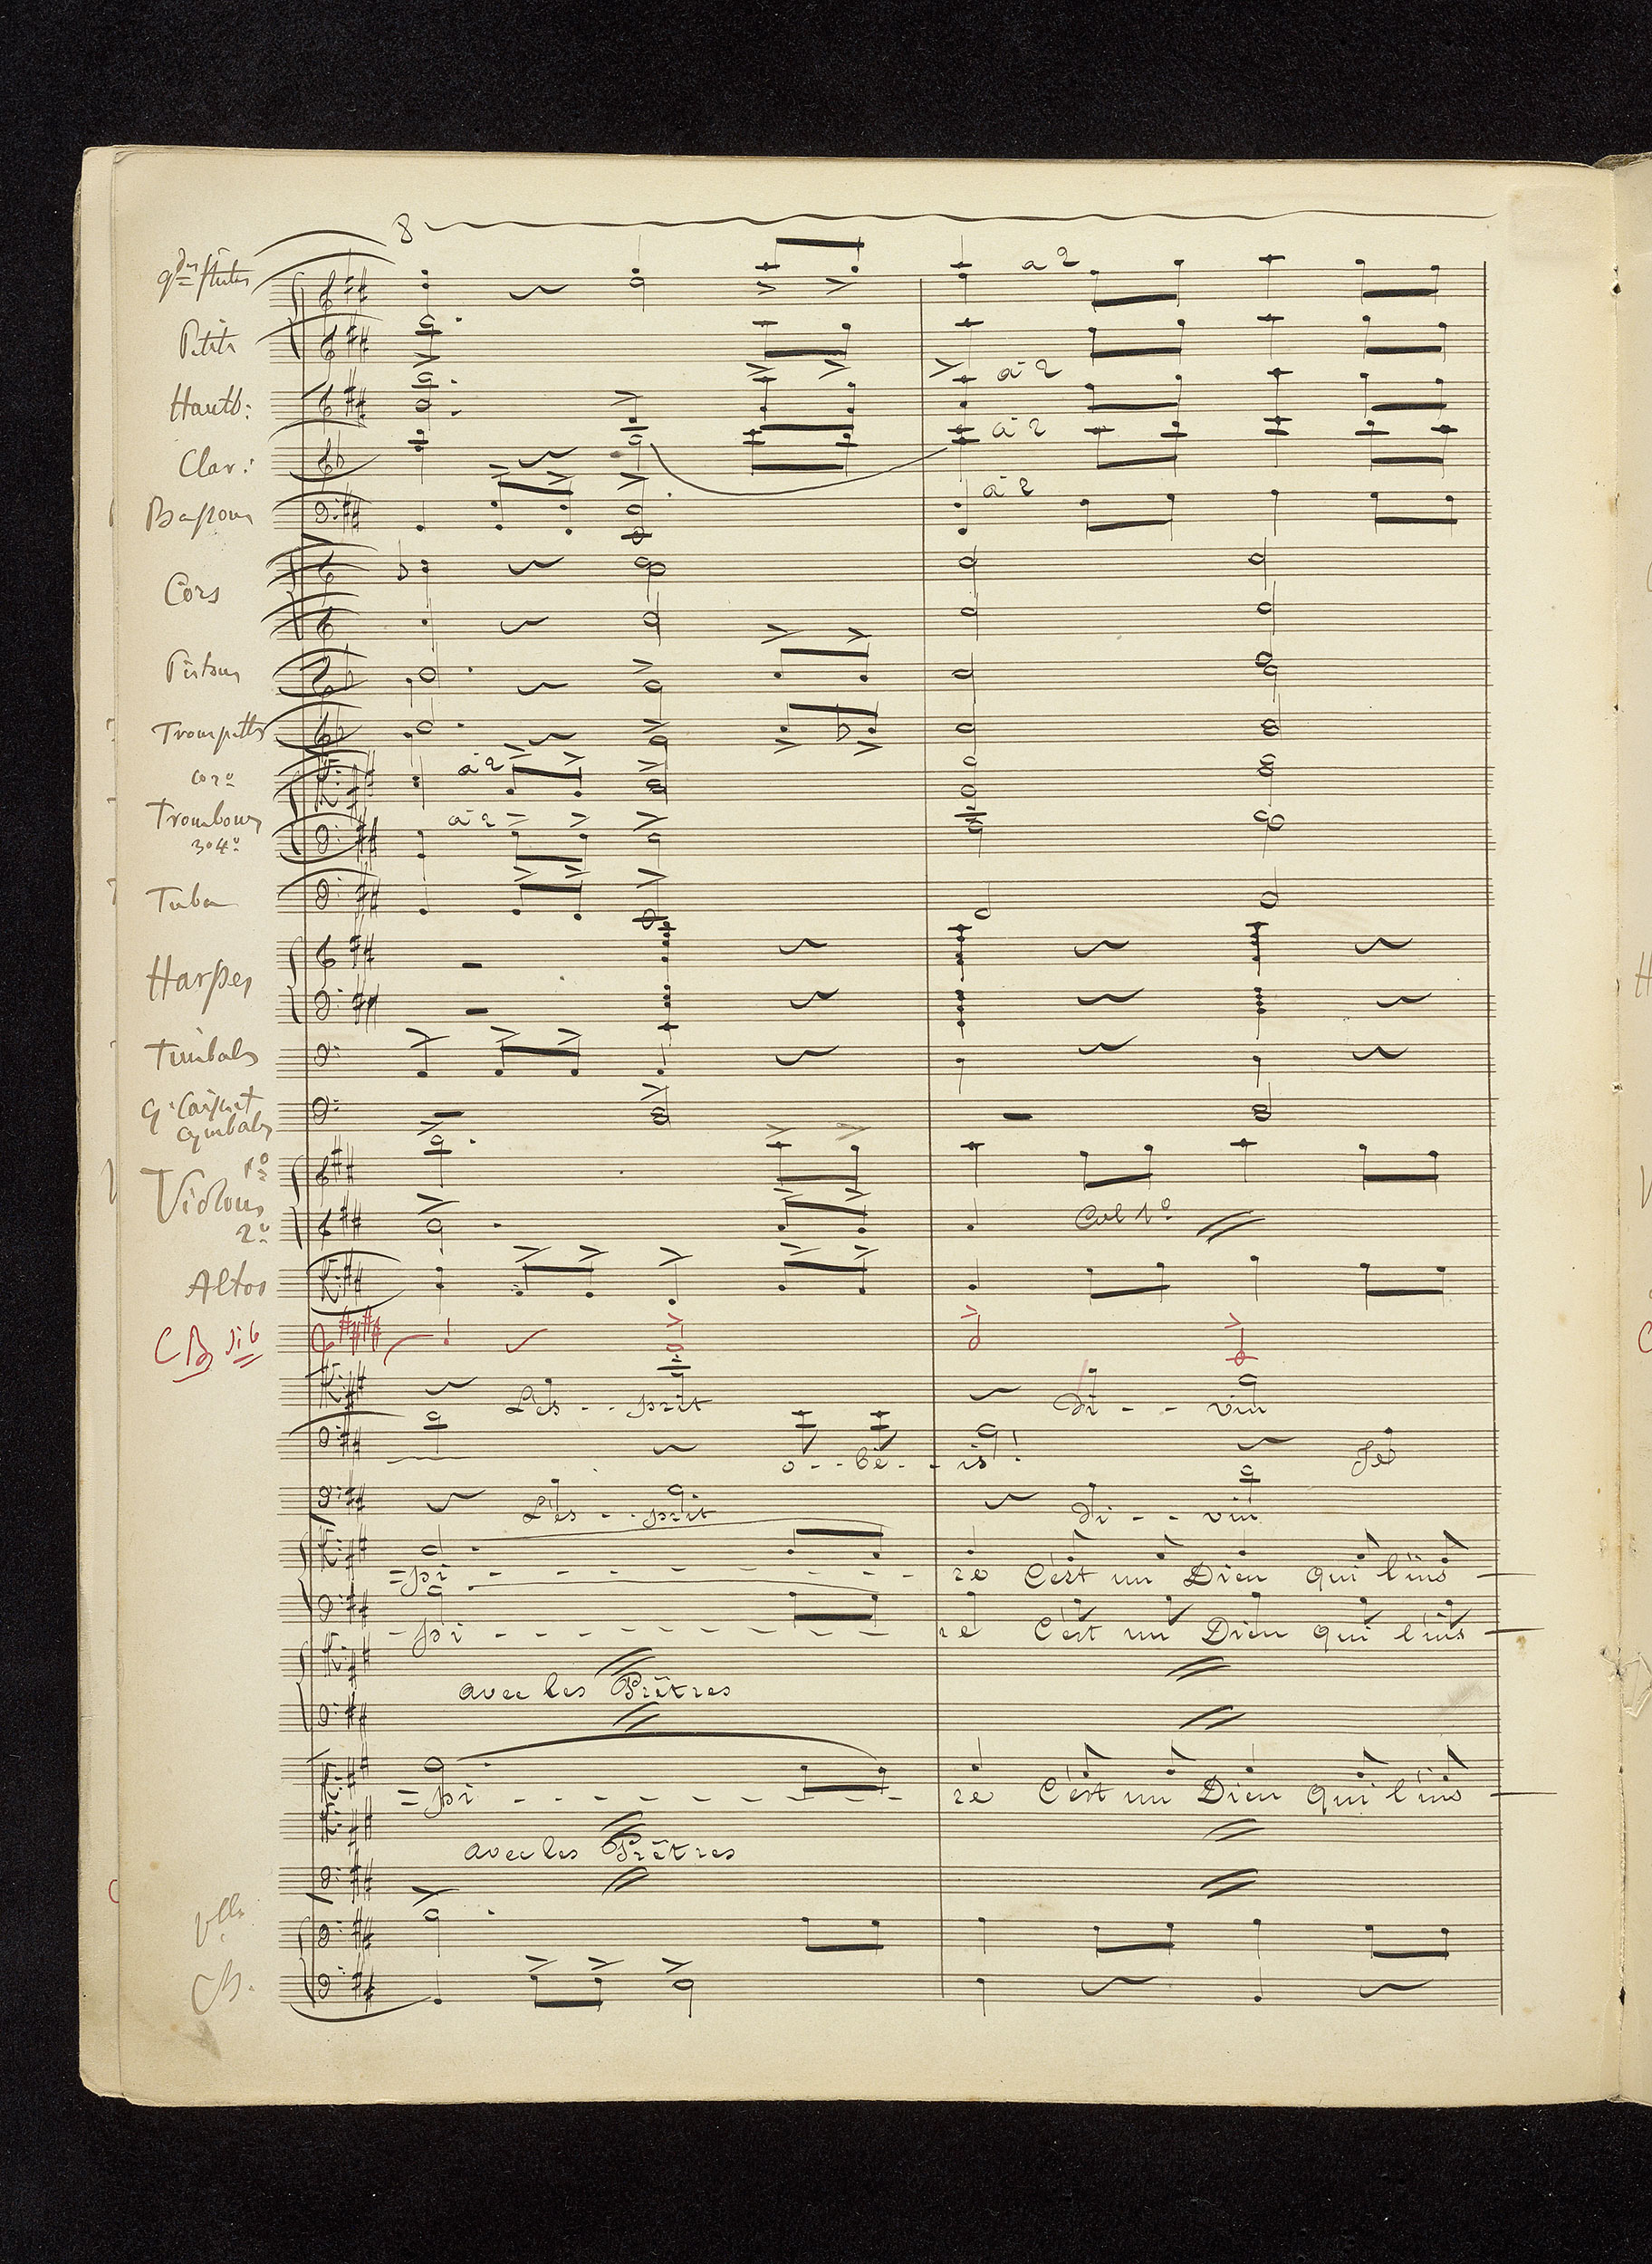 8
gdes flûtes
à 2
Petite
Hautb:
à 2
Clar:
à 2
Bassons
à 2
Cors
Pistons
Trompettes
à 2
Trombones
à 2
3o 4o
Tuba
Harpes
Timbales
Cymbales
1o
Violons
2o
Col 1o
Altos
CB si b
L'es - - prit di - - vin
o - - bé - - is! Je
L'es - - prit di - - vin
= pi - - - - - - - - re C'est un Dieu qui l'ins
- pi - - - - - - - - - re C'est un Dieu qui l'ins
avec les Prêtres
= pi - - - - - - - - re C'est un Dieu qui l'ins
avec les Prêtres
vlles
CB.